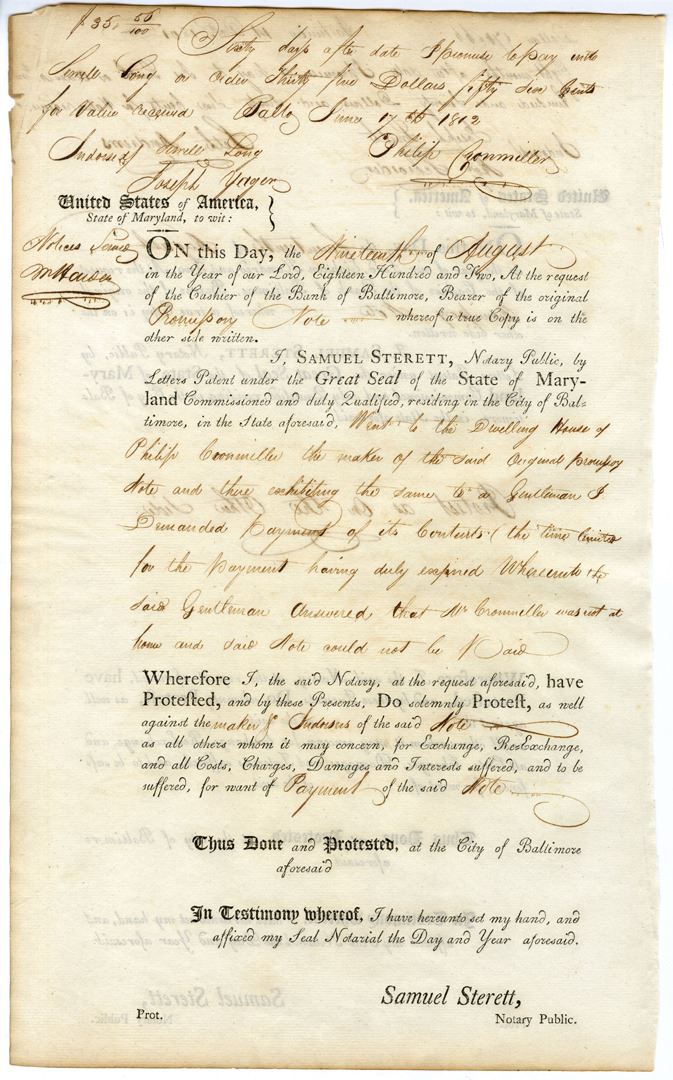 $35 56/100
Sixty days after date I promise to pay unto
Sewell Long or order Thirty five Dollars fifty six Cents
for Value received Balto June 17th 1802
Philip Cronmiller
Indorsed Sewell Long
Joseph Yager
United States of America,
State of Maryland, to wit:
Notices Served
ON this Day, the Nineteenth of August
in the Year of our Lord, Eighteen Hundred and Two, At the request
of the Cashier of the Bank of Baltimore, Bearer of the original
Promissory Note whereof a true Copy is on the
other side written.
I, SAMUEL STERETT, Notary Public, by
Letters Patent under the Great Seal of the State of Mary-
land Commissioned and duly Qualified, residing in the City of Bal-
timore, in the State aforesaid, Went to the Dwelling House of
Philip Cronmiller the maker of the said Original promissory
Note and there exhibiting the same to a Gentleman I
Demanded Payment of its Contents (the time limited
for the Payment having duly expired Whereunto the
said Gentleman Answered that Mr Cronmiller was not at
home and said Note could not be Paid
Wherefore I, the said Notary, at the request aforesaid, have
Protested, and by these Presents, Do solemnly Protest, as well
against the maker & Indorsers of the said Note
as all others whom it may concern, for Exchange, Re-Exchange,
and all Costs, Charges, Damages and Interests suffered, and to be
suffered, for want of Payment of the said Note
Thus Done and Protested, at the City of Baltimore
aforesaid
In Testimony whereof, I have hereunto set my hand, and
affixed my Seal Notarial the Day and Year aforesaid.
Samuel Sterett,
Prot. Notary Public.